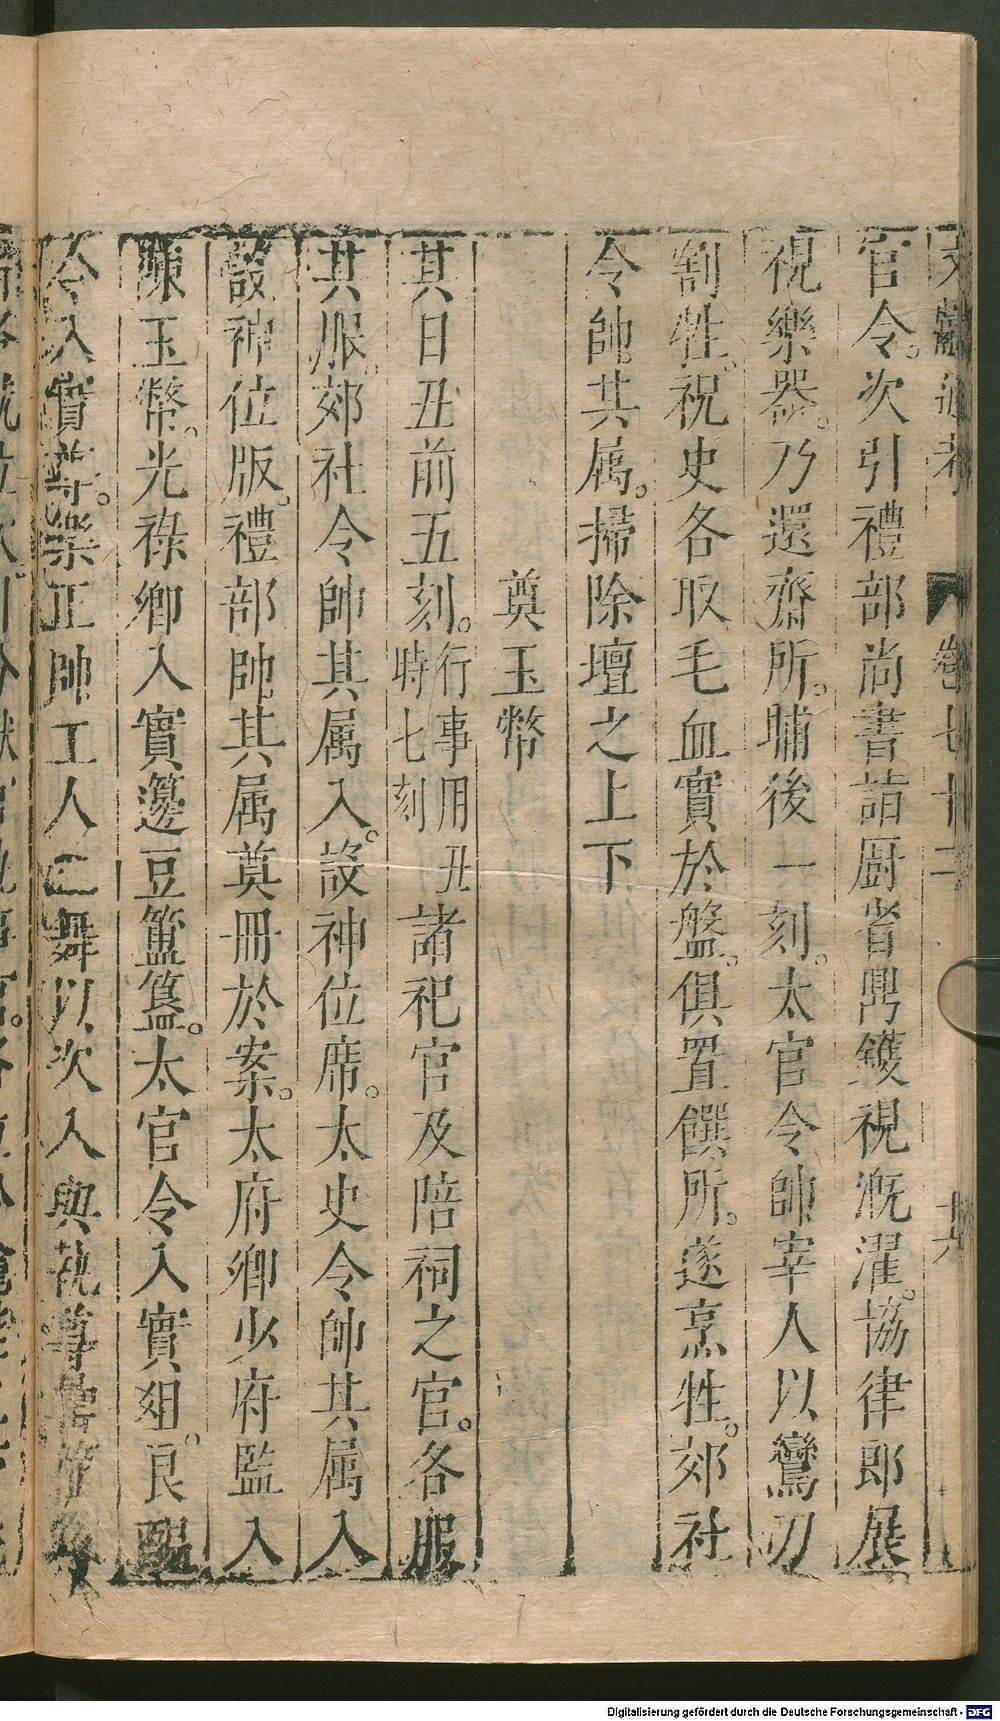 文獻通考 卷七十二 十六
官令。次引禮部尚書詣厨省鼎鑊視漑濯。協律郎展
視樂器。乃還齋所。晡後一刻。太官令帥宰人以鸞刀
割牲。祝史各取毛血實於盤。俱置饌所。遂烹牲。郊社
令帥其属。掃除壇之上下
奠玉幣
其日丑前五刻。行事用丑時七刻諸祀官及陪祠之官。各服
其服。郊社令帥其属入。設神位席。太史令帥其属入
設神位版。禮部帥其属奠冊於案。太府卿少府監入
陳玉幣。光祿卿入實籩豆簠簋。太官令入實俎。良醞
令入實尊。樂正帥工人二舞以次入與執尊罍篚
Digitalisierung gefördert durch die Deutsche Forschungsgemeinschaft - DFG